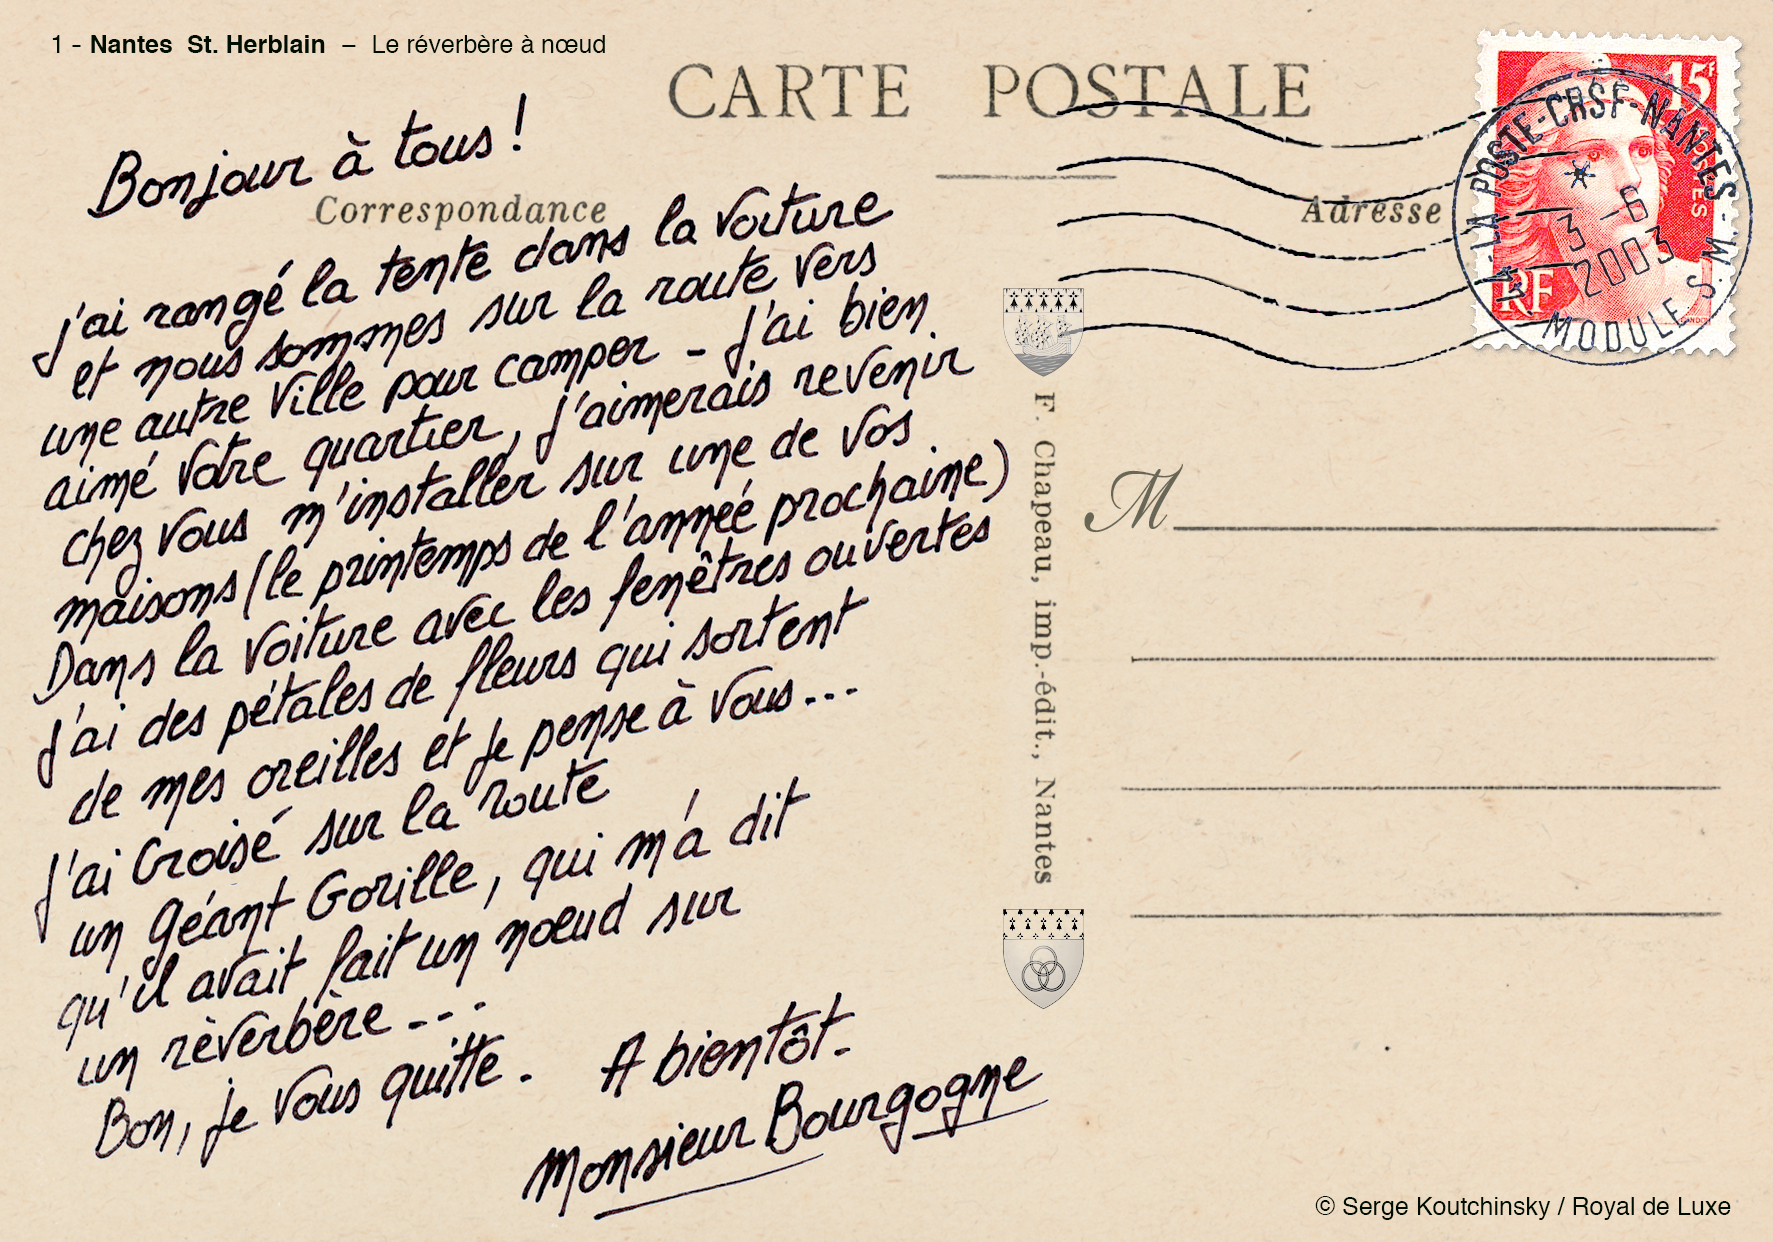 1 - Nantes St. Herblain – Le réverbère à nœud
CARTE POSTALE
Correspondance
Adresse
Bonjour à tous !
J'ai rangé la tente dans la voiture
et nous sommes sur la route vers
une autre ville pour camper - J'ai bien
aimé votre quartier, j'aimerais revenir
chez vous m'installer sur une de vos
maisons (le printemps de l'année prochaine)
Dans la voiture avec les fenêtres ouvertes
J'ai des pétales de fleurs qui sortent
de mes oreilles et je pense à vous...
J'ai croisé sur la route
un géant Gorille, qui m'a dit
qu'il avait fait un nœud sur
un rèverbère ---
Bon, je vous quitte. A bientôt.
Monsieur Bourgogne
F. Chapeau, imp.-édit., Nantes
M
15F
POSTES
RF
LA POSTE-CRSF-NANTES-
3 -6
2003
MODULE S.M.
© Serge Koutchinsky / Royal de Luxe